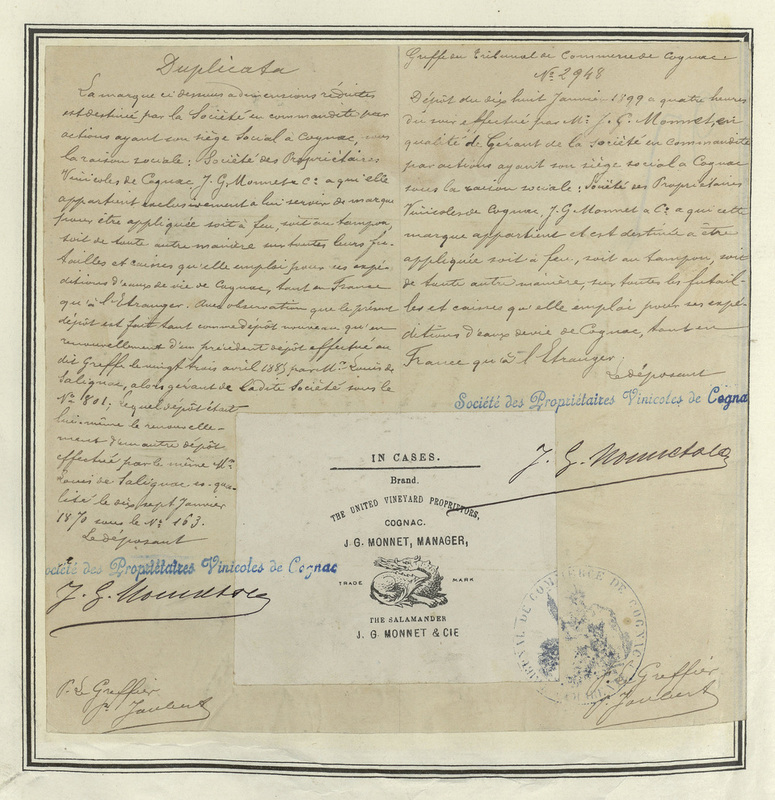 Duplicata
La marque ci dessus a dimensions réduites
est destiné par la Société en commandite par
actions ayant son siège Social à Cognac, sous
la raison sociale: Société des Propriétaires
Vinicoles de Cognac, J. G. Monnet & Cº a qu'elle
appartient exclusivement a lui servir de marque
pour être appliquée soit à feu, soit au tampon
soit de toute autre manière sur toutes leurs fu-
tailles et caisses qu'elle emploi pour ses expé-
ditions d'eaux de vie de Cognac, tant en France
qu'à l'Etranger. Avec observation que le présent
dépôt est fait tant comme dépôt nouveau qu'en
renouvellement d'un précédent dépôt effectué au
dit Greffe le vingt trois avril 1885 par Mr Louis de
Salignac, alors gérant de Ladite Société sous le
Nº 1801; lequel dépôt était
lui-même le renouvelle-
ment d'un autre dépôt
effectué par le même Mr
Louis de Salignac es-qua-
lité le dix sept Janvier
1870 sous le Nº 163.
Le déposant
Société des Propriétaires Vinicoles de Cognac
J. G. Monnet & Co
P. Le Greffier
Jh Joubert
Greffe du Tribunal de Commerce de Cognac
Nº 2948
Dépôt du dix huit Janvier 1899 a quatre heures
du soir effectué par Mr J. G. Monnet, en
qualité de Gérant de la Société en commandite
par actions ayant son siége social a Cognac
sous la raison sociale: Société des Propriétaires
Vinicoles de Cognac, J. G Monnet & Cº a qui cette
marque appartient et est destinée a être
appliquée soit à feu, soit au tampon, soit
de toute autre manière, sur toutes les futail-
les et caisses qu'elle emploi pour ses expé-
ditions d'eaux de vie de Cognac, tant en
France qu'à l'Etranger
Le déposant
Société des Propriétaires Vinicoles de Cogna
J. G. Monnet & Co
IN CASES.
Brand.
THE UNITED VINEYARD PROPRIETORS,
COGNAC.
J. G. MONNET, MANAGER,
TRADE MARK
THE SALAMANDER
J. G. MONNET & CIE
TRIBUNAL DE COMMERCE DE COGNAC
Greffier
Joubert